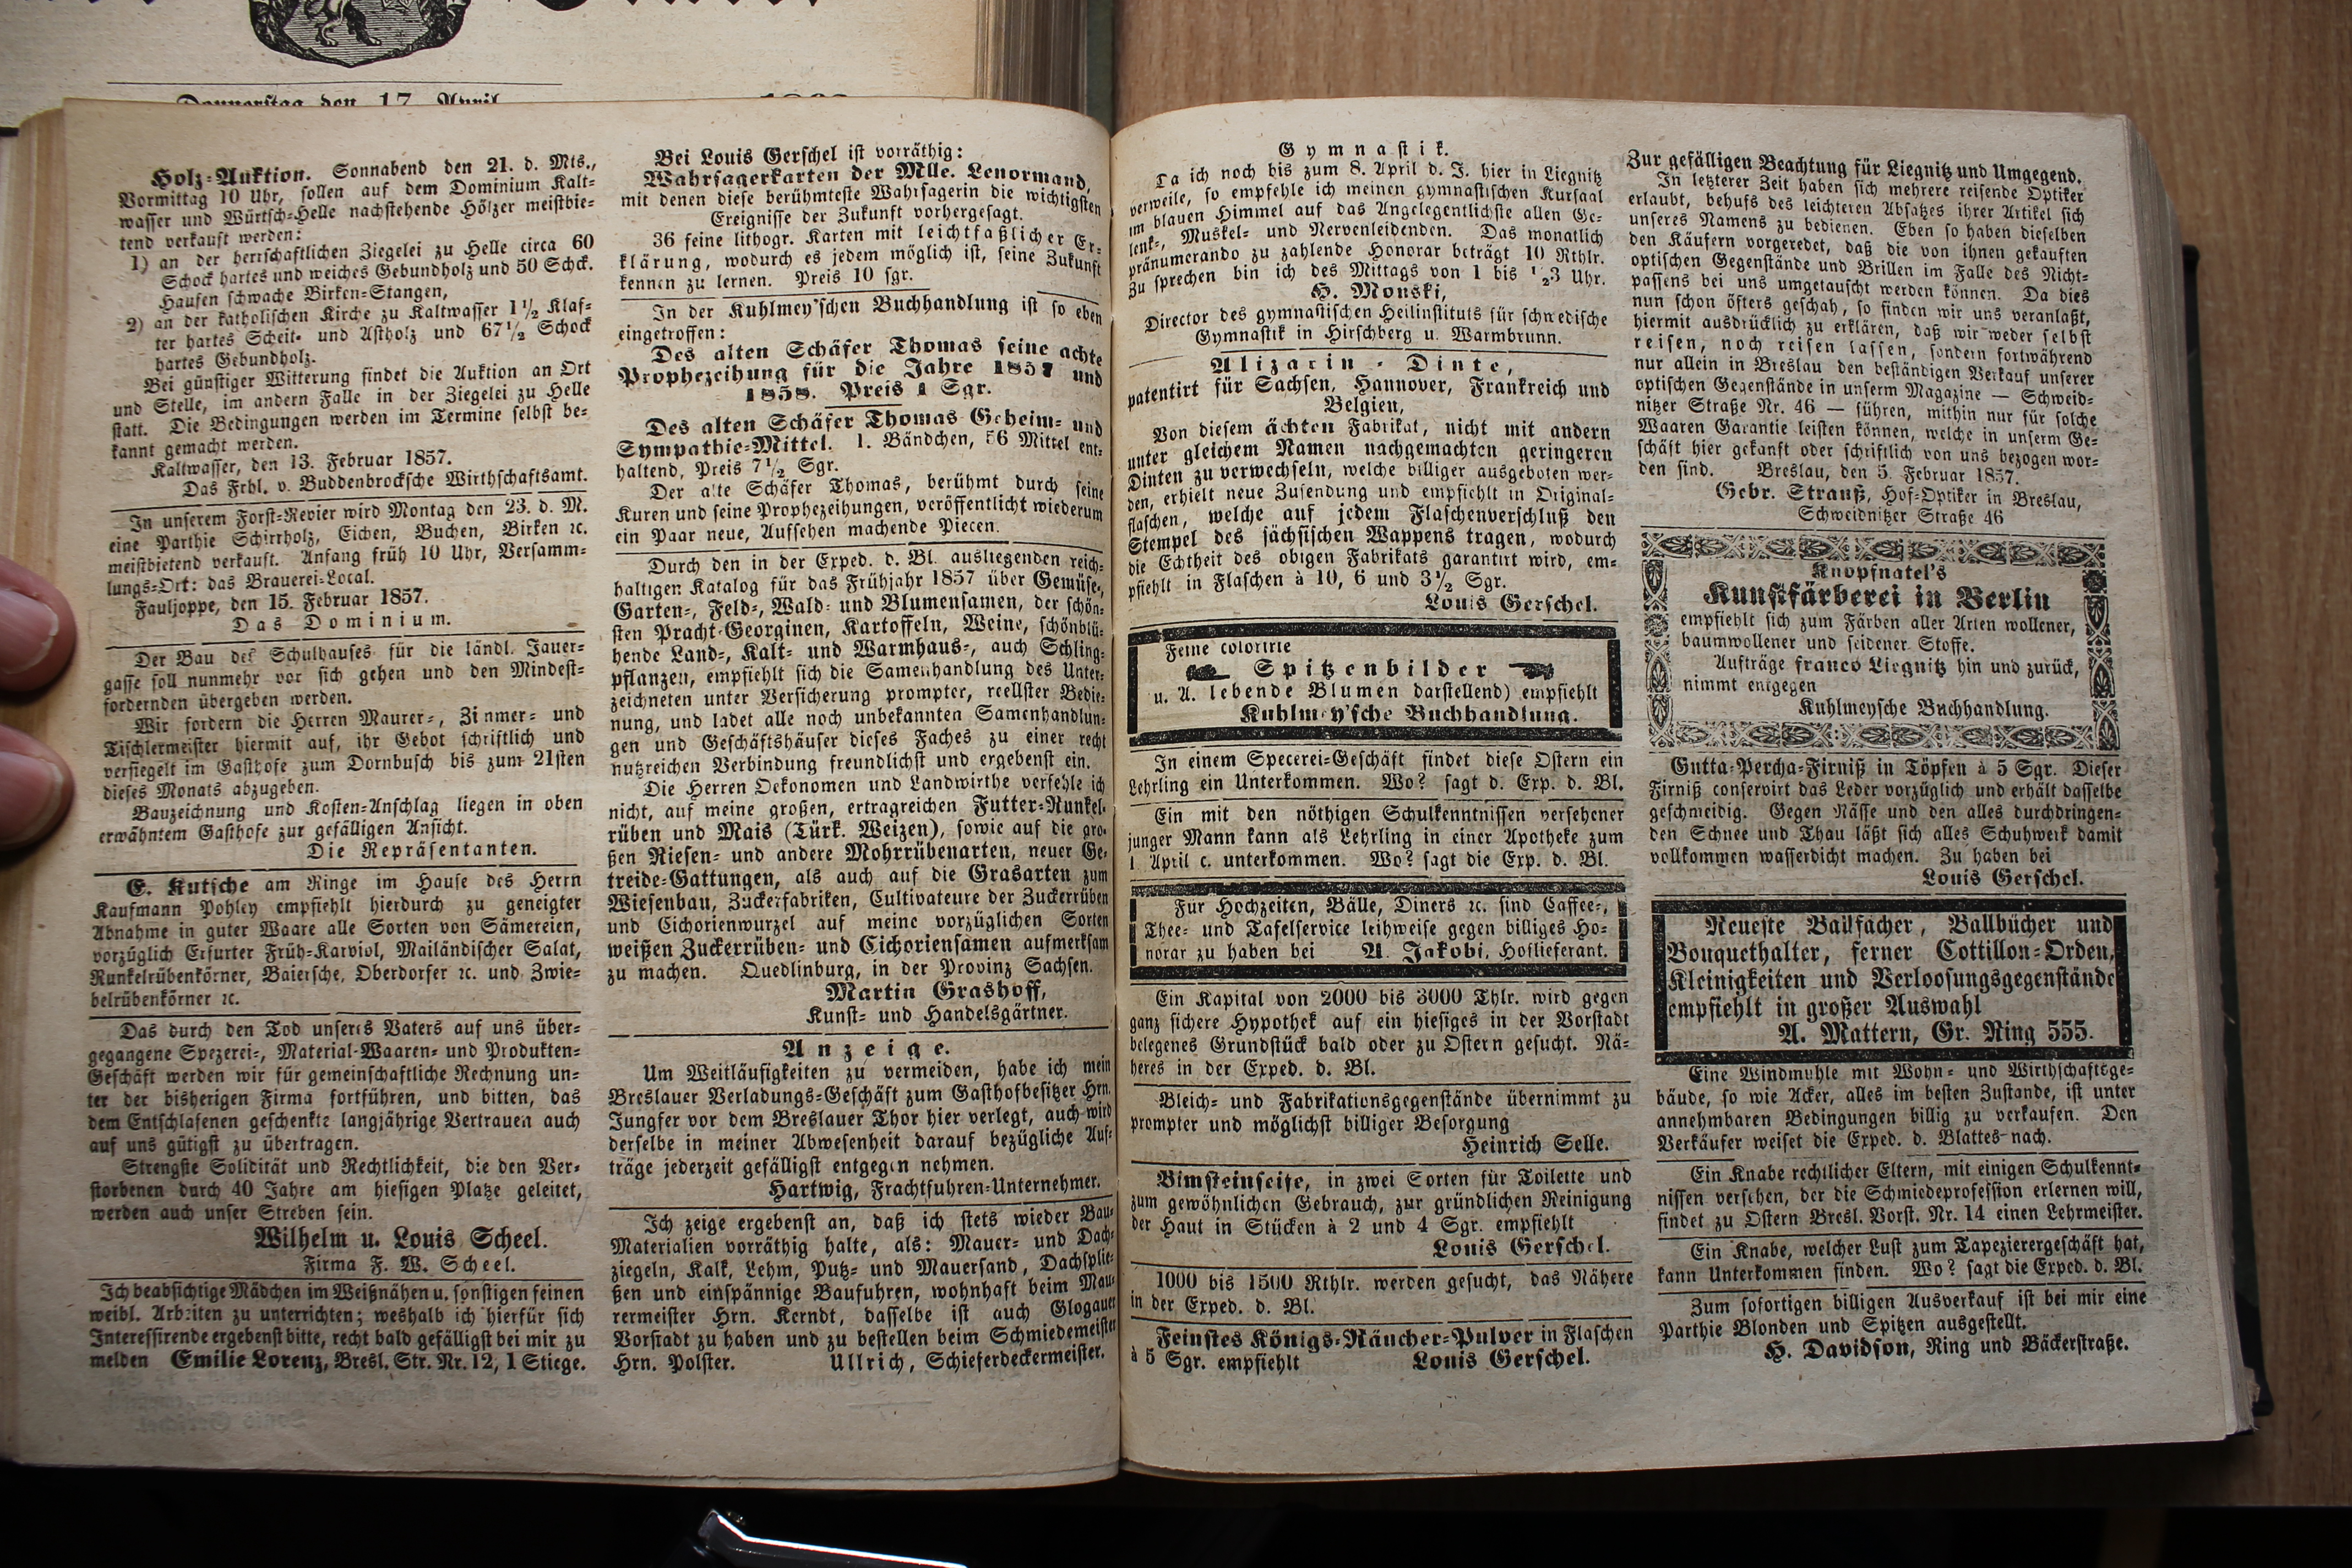 Donnerstag den 17. April
Holz-Auktion. Sonnabend den 21. d. Mts.,
Vormittag 10 Uhr, sollen auf dem Dominium Kalt-
wasser und Würtsch-Helle nachstehende Hölzer meistbie-
tend verkauft werden:
1) an der herrschaftlichen Ziegelei zu Helle circa 60
Schock hartes und weiches Gebundholz und 50 Schck.
Haufen schwache Birken-Stangen,
2) an der katholischen Kirche zu Kaltwasser 1½ Klaf-
ter hartes Scheit- und Astholz und 67½ Schock
hartes Gebundholz.
Bei günstiger Witterung findet die Auktion an Ort
und Stelle, im andern Falle in der Ziegelei zu Helle
statt. Die Bedingungen werden im Termine selbst be-
kannt gemacht werden.
Kaltwasser, den 13. Februar 1857.
Das Frhl. v. Buddenbrocksche Wirthschaftsamt.
In unserem Forst-Revier wird Montag den 23. d. M.
eine Parthie Schirrholz, Eichen, Buchen, Birken ꝛc.
meistbietend verkauft. Anfang früh 10 Uhr, Versamm-
lungs-Ort: das Brauerei-Local.
Fauljoppe, den 15. Februar 1857.
Das Dominium.
Der Bau des Schulhauses für die ländl. Jauer-
gasse soll nunmehr vor sich gehen und den Mindest-
fordernden übergeben werden.
Wir fordern die Herren Maurer-, Zimmer- und
Tischlermeister hiermit auf, ihr Gebot schriftlich und
versiegelt im Gasthofe zum Dornbusch bis zum 21sten
dieses Monats abzugeben.
Bauzeichnung und Kosten-Anschlag liegen in oben
erwähntem Gasthofe zur gefälligen Ansicht.
Die Repräsentanten.
E. Kutsche am Ringe im Hause des Herrn
Kaufmann Pohley empfiehlt hierdurch zu geneigter
Abnahme in guter Waare alle Sorten von Sämereien,
vorzüglich Erfurter Früh-Karviol, Mailändischer Salat,
Runkelrübenkörner, Baiersche, Oberdorfer ꝛc. und Zwie-
belrübenkörner ꝛc.
Das durch den Tod unseres Vaters auf uns über-
gegangene Spezerei-, Material-Waaren- und Produkten-
Geschäft werden wir für gemeinschaftliche Rechnung un-
ter der bisherigen Firma fortführen, und bitten, das
dem Entschlafenen geschenkte langjährige Vertrauen auch
auf uns gütigst zu übertragen.
Strengste Solidität und Rechtlichkeit, die den Ver-
storbenen durch 40 Jahre am hiesigen Platze geleitet,
werden auch unser Streben sein.
Wilhelm u. Louis Scheel.
Firma F. W. Scheel.
Ich beabsichtige Mädchen im Weißnähen u. sonstigen feinen
weibl. Arbeiten zu unterrichten; weshalb ich hierfür sich
Interessirende ergebenst bitte, recht bald gefälligst bei mir zu
melden Emilie Lorenz, Bresl. Str. Nr. 12, 1 Stiege.
Bei Louis Gerschel ist vorräthig:
Wahrsagerkarten der Mlle. Lenormand,
mit denen diese berühmteste Wahrsagerin die wichtigsten
Ereignisse der Zukunft vorhergesagt.
36 feine lithogr. Karten mit leichtfaßlicher Er-
klärung, wodurch es jedem möglich ist, seine Zukunft
kennen zu lernen. Preis 10 sgr.
In der Kuhlmey'schen Buchhandlung ist so eben
eingetroffen:
Des alten Schäfer Thomas seine achte
Prophezeihung für die Jahre 1857 und
1858. Preis 1 Sgr.
Des alten Schäfer Thomas Geheim- und
Sympathie-Mittel. 1. Bändchen, 56 Mittel ent-
haltend, Preis 7½ Sgr.
Der alte Schäfer Thomas, berühmt durch seine
Kuren und seine Prophezeihungen, veröffentlicht wiederum
ein Paar neue, Aufsehen machende Piecen.
Durch den in der Exped. d. Bl. ausliegenden reich-
haltigen Katalog für das Frühjahr 1857 über Gemüse-,
Garten-, Feld-, Wald- und Blumensamen, der schön-
sten Pracht-Georginen, Kartoffeln, Weine, schönblü-
hende Land-, Kalt- und Warmhaus-, auch Schling-
pflanzen, empfiehlt sich die Samenhandlung des Unter-
zeichneten unter Versicherung prompter, reellster Bedie-
nung, und ladet alle noch unbekannten Samenhandlun-
gen und Geschäftshäuser dieses Faches zu einer recht
nutzreichen Verbindung freundlichst und ergebenst ein.
Die Herren Oekonomen und Landwirthe verfehle ich
nicht, auf meine großen, ertragreichen Futter-Runkel-
rüben und Mais (Türk. Weizen), sowie auf die gro-
ßen Riesen- und andere Mohrrübenarten, neuer Ge-
treide-Gattungen, als auch auf die Grasarten zum
Wiesenbau, Zuckerfabriken, Cultivateure der Zuckerrüben
und Cichorienwurzel auf meine vorzüglichen Sorten
weißen Zuckerrüben- und Cichoriensamen aufmerksam
zu machen. Quedlinburg, in der Provinz Sachsen.
Martin Grashoff,
Kunst- und Handelsgärtner.
Anzeige.
Um Weitläufigkeiten zu vermeiden, habe ich mein
Breslauer Verladungs-Geschäft zum Gasthofbesitzer Hrn.
Jungfer vor dem Breslauer Thor hier verlegt, auch wird
derselbe in meiner Abwesenheit darauf bezügliche Auf-
träge jederzeit gefälligst entgegen nehmen.
Hartwig, Frachtfuhren-Unternehmer.
Ich zeige ergebenst an, daß ich stets wieder Bau-
Materialien vorräthig halte, als: Mauer- und Dach-
ziegeln, Kalk, Lehm, Putz- und Mauersand, Dachsplie-
ßen und einspännige Baufuhren, wohnhaft beim Mau-
rermeister Hrn. Kerndt, dasselbe ist auch Glogauer
Vorstadt zu haben und zu bestellen beim Schmiedemeister
Hrn. Polster. Ullrich, Schieferdeckermeister.
Gymnastik.
Da ich noch bis zum 8. April d. J. hier in Liegnitz
verweile, so empfehle ich meinen gymnastischen Kursaal
im blauen Himmel auf das Angelegentlichste allen Ge-
lenk-, Muskel- und Nervenleidenden. Das monatlich
pränumerando zu zahlende Honorar beträgt 10 Rthlr.
Zu sprechen bin ich des Mittags von 1 bis ½3 Uhr.
H. Monski,
Director des gymnastischen Heilinstituts für schwedische
Gymnastik in Hirschberg u. Warmbrunn.
Alizarin-Dinte,
patentirt für Sachsen, Hannover, Frankreich und
Belgien,
Von diesem ächten Fabrikat, nicht mit andern
unter gleichem Namen nachgemachten geringeren
Dinten zu verwechseln, welche billiger ausgeboten wer-
den, erhielt neue Zusendung und empfiehlt in Original-
flaschen, welche auf jedem Flaschenverschluß den
Stempel des sächsischen Wappens tragen, wodurch
die Echtheit des obigen Fabrikats garantirt wird, em-
pfiehlt in Flaschen à 10, 6 und 3½ Sgr.
Louis Gerschel.
Feine colorirte
Spitzenbilder
u. A. lebende Blumen darstellend) empfiehlt
Kuhlmey'sche Buchhandlung.
In einem Specerei-Geschäft findet diese Ostern ein
Lehrling ein Unterkommen. Wo? sagt d. Exp. d. Bl.
Ein mit den nöthigen Schulkenntnissen versehener
junger Mann kann als Lehrling in einer Apotheke zum
1 April c. unterkommen. Wo? sagt die Exp. d. Bl.
Für Hochzeiten, Bälle, Diners ꝛc. sind Caffee-,
Thee- und Tafelservice leihweise gegen billiges Ho-
norar zu haben bei A. Jakobi, Hoflieferant.
Ein Kapital von 2000 bis 3000 Thlr. wird gegen
ganz sichere Hypothek auf ein hiesiges in der Vorstadt
belegenes Grundstück bald oder zu Ostern gesucht. Nä-
heres in der Exped. d. Bl.
Bleich- und Fabrikationsgegenstände übernimmt zu
prompter und möglichst billiger Besorgung
Heinrich Selle.
Bimsteinseife, in zwei Sorten für Toilette und
zum gewöhnlichen Gebrauch, zur gründlichen Reinigung
der Haut in Stücken à 2 und 4 Sgr. empfiehlt
Louis Gerschel.
1000 bis 1500 Rthlr. werden gesucht, das Nähere
in der Exped. d. Bl.
Feinstes Königs-Räucher-Pulver in Flaschen
à 5 Sgr. empfiehlt Louis Gerschel.
Zur gefälligen Beachtung für Liegnitz und Umgegend.
In letzterer Zeit haben sich mehrere reisende Optiker
erlaubt, behufs des leichteren Absatzes ihrer Artikel sich
unseres Namens zu bedienen. Eben so haben dieselben
den Käufern vorgeredet, daß die von ihnen gekauften
optischen Gegenstände und Brillen im Falle des Nicht-
passens bei uns umgetauscht werden können. Da dies
nun schon öfters geschah, so finden wir uns veranlaßt,
hiermit ausdrücklich zu erklären, daß wir weder selbst
reisen, noch reisen lassen, sondern fortwährend
nur allein in Breslau den beständigen Verkauf unserer
optischen Gegenstände in unserm Magazine — Schweid-
nitzer Straße Nr. 46 — führen, mithin nur für solche
Waaren Garantie leisten können, welche in unserm Ge-
schäft hier gekauft oder schriftlich von uns bezogen wor-
den sind. Breslau, den 5. Februar 1857.
Gebr. Strauß, Hof-Optiker in Breslau,
Schweidnitzer Straße 46
Knopfnatel's
Kunstfärberei in Berlin
empfiehlt sich zum Färben aller Arten wollener,
baumwollener und seidener Stoffe.
Aufträge franco Liegnitz hin und zurück,
nimmt entgegen
Kuhlmeysche Buchhandlung.
Gutta-Percha-Firniß in Töpfen à 5 Sgr. Dieser
Firniß conservirt das Leder vorzüglich und erhält dasselbe
geschmeidig. Gegen Nässe und den alles durchdringen-
den Schnee und Thau läßt sich alles Schuhwerk damit
vollkommen wasserdicht machen. Zu haben bei
Louis Gerschel.
Neueste Ballfächer, Ballbücher und
Bouquethalter, ferner Cottillon-Orden,
Kleinigkeiten und Verloosungsgegenstände
empfiehlt in großer Auswahl
A. Mattern, Gr. Ring 555.
Eine Windmühle mit Wohn- und Wirthschaftsge-
bäude, so wie Acker, alles im besten Zustande, ist unter
annehmbaren Bedingungen billig zu verkaufen. Den
Verkäufer weiset die Exped. d. Blattes nach.
Ein Knabe rechtlicher Eltern, mit einigen Schulkennt-
nissen versehen, der die Schmiedeprofession erlernen will,
findet zu Ostern Bresl. Vorst. Nr. 14 einen Lehrmeister.
Ein Knabe, welcher Lust zum Tapezierergeschäft hat,
kann Unterkommen finden. Wo? sagt die Exped. d. Bl.
Zum sofortigen billigen Ausverkauf ist bei mir eine
Parthie Blonden und Spitzen ausgestellt.
H. Davidson, Ring und Bäckerstraße.